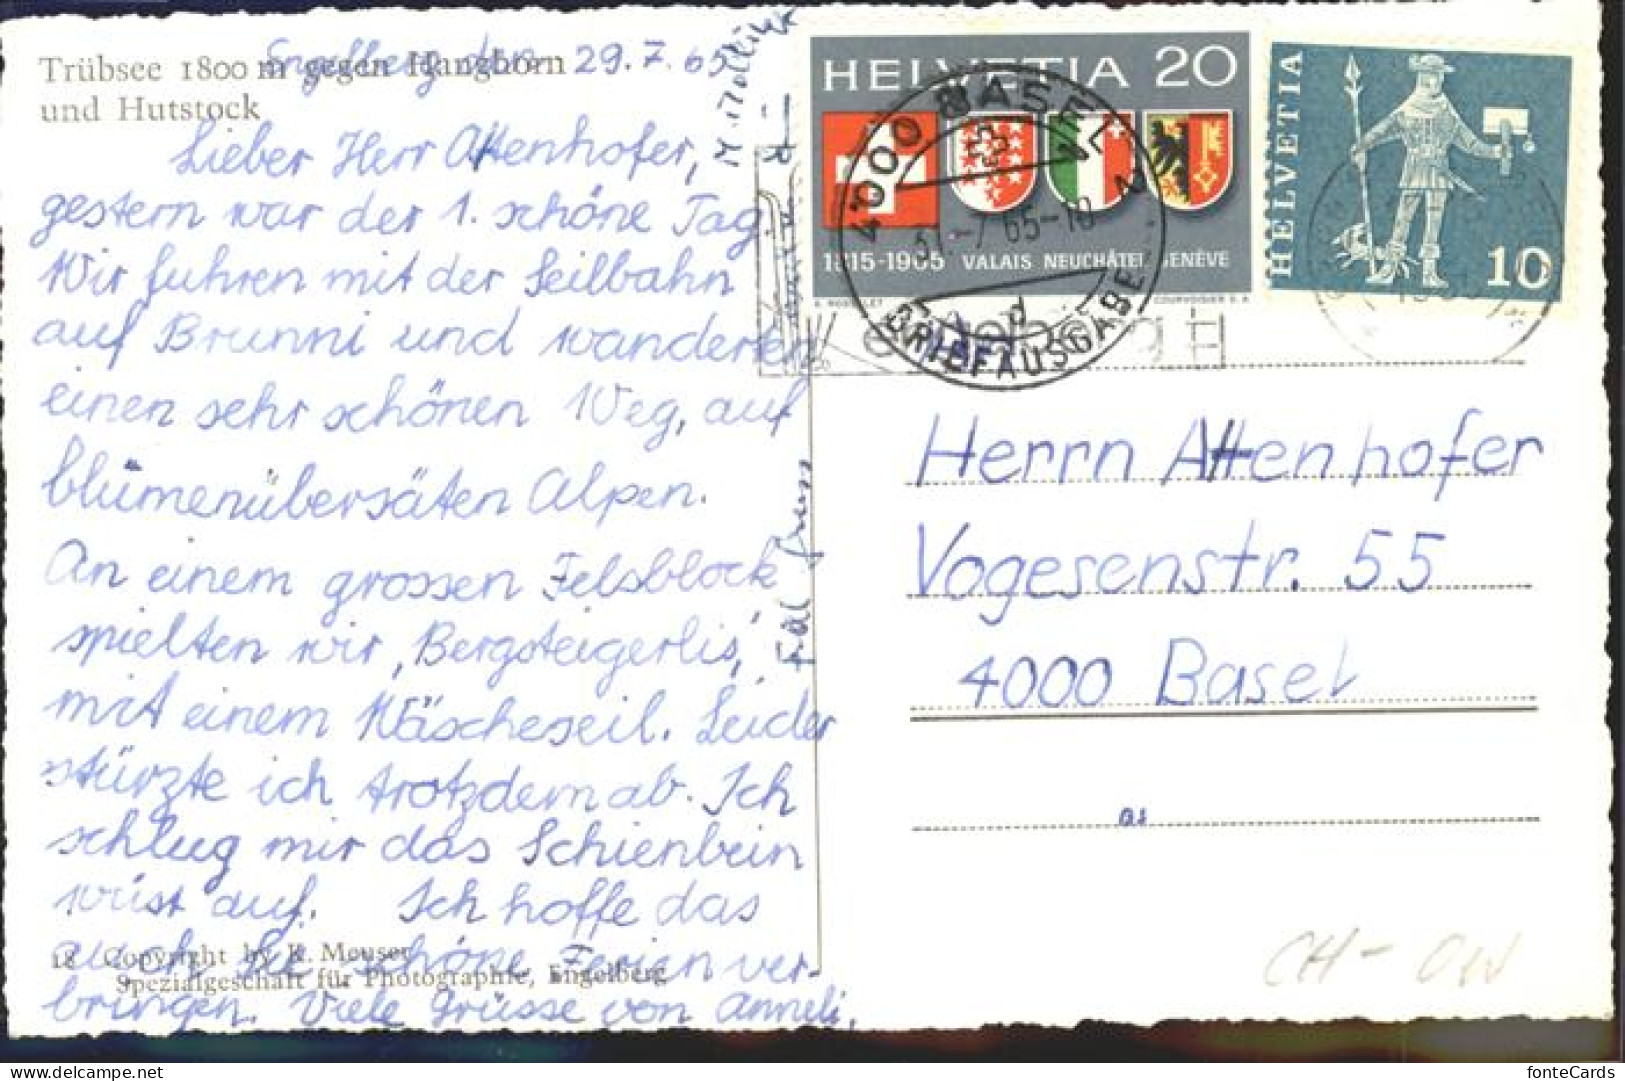 Trübsee 1800 m gegen Hanghorn
und Hutstock
Engelberg den 29.7.65
Lieber Herr Attenhofer,
gestern war der 1. schöne Tag
Wir fuhren mit der Seilbahn
auf Brunni und wanderten
einen sehr schönen Weg, auf
blümenübersäten Alpen.
An einem grossen Felsblock
spielten wir ‚Bergsteigerlis,'
mit einem Wäscheseil. Leider
stürzte ich trotzdem ab. Ich
schlug mir das Schienbein
wüst auf. Ich hoffe das
auch Sie schöne Ferien ver-
bringen. Viele Grüsse von Anneli,
18 Copyright by K. Meuser
Spezialgeschäft für Photographie, Engelberg
HELVETIA 20
1815-1965 VALAIS NEUCHÂTEL GENÈVE
COURVOISIER S.A.
4000 BASEL
31-7 65-10
BRIEFAUSGABE
HELVETIA
10
Herrn Attenhofer
Vogesenstr. 55
4000 Basel
as
CH - OW
fonteCards